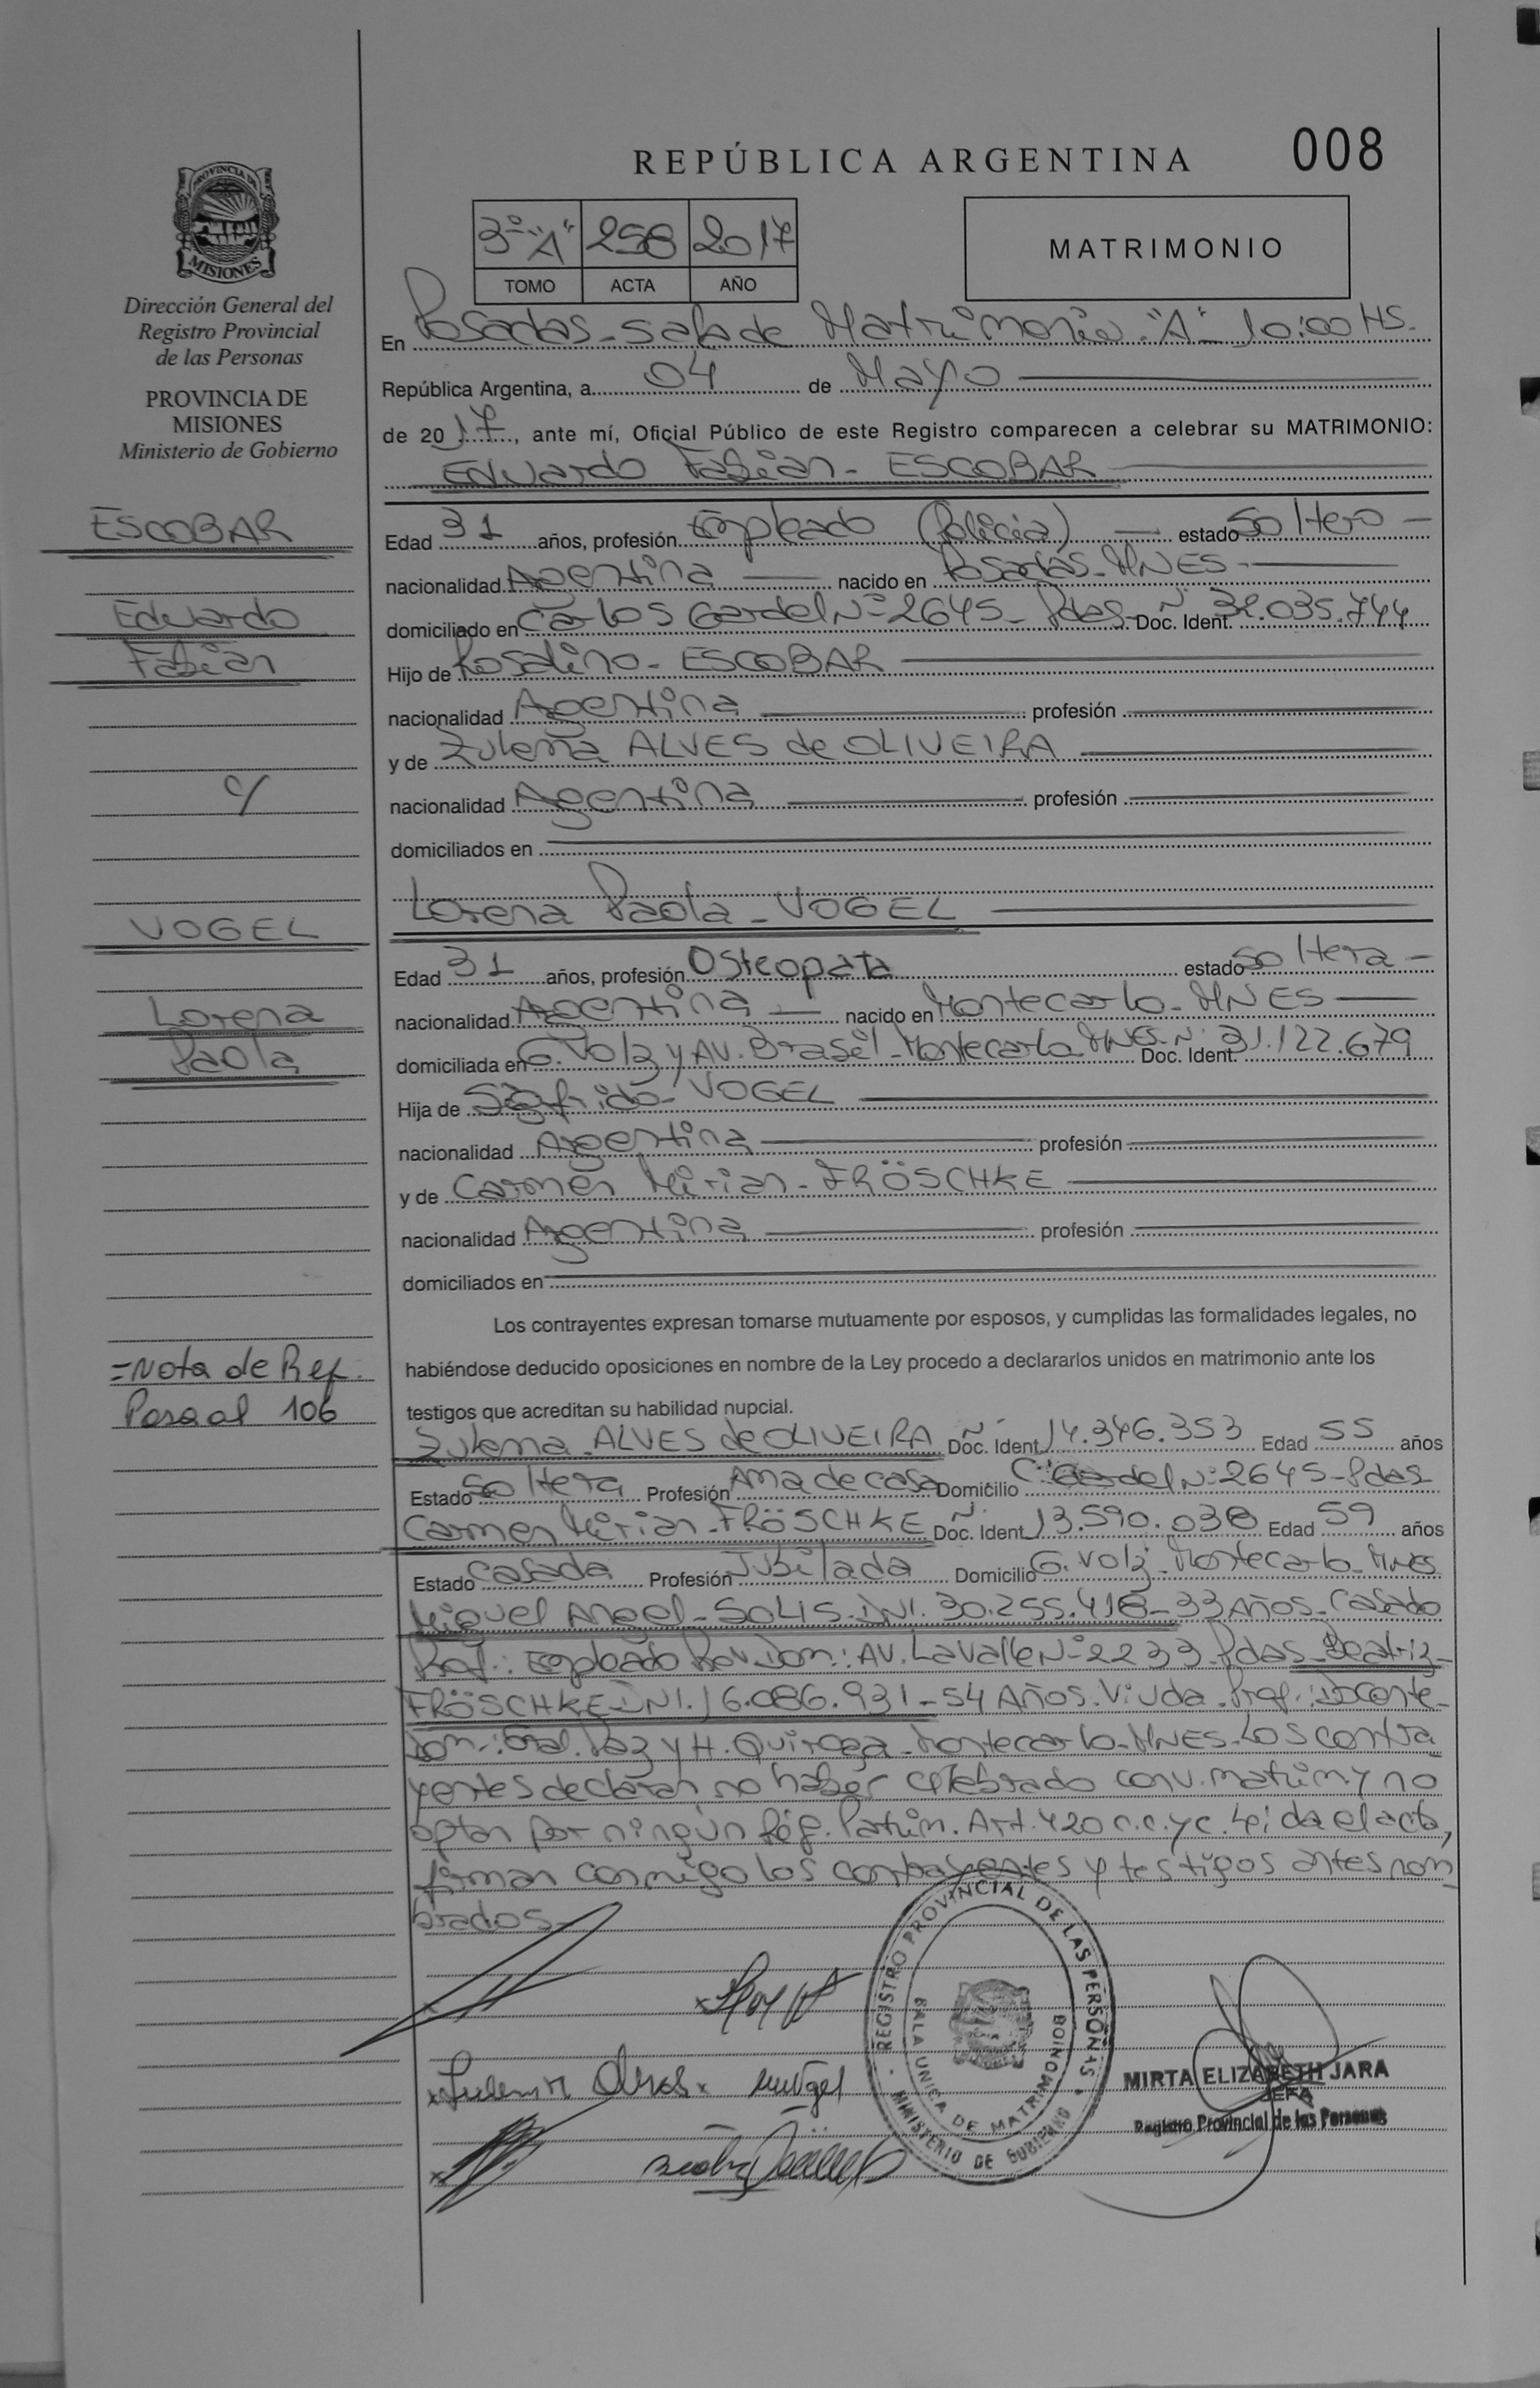 REPÚBLICA ARGENTINA 008
PROVINCIA DE
MISIONES
3º "A" 258 2017
TOMO ACTA AÑO
MATRIMONIO
Dirección General del
Registro Provincial
de las Personas
PROVINCIA DE
MISIONES
Ministerio de Gobierno
En Posadas - sala de Matrimonio "A" - 10:00 HS.
República Argentina, a 04 de Mayo
de 2017, ante mí, Oficial Público de este Registro comparecen a celebrar su MATRIMONIO:
Eduardo Fabian - ESCOBAR
ESCOBAR
Eduardo
Fabian
c/
VOGEL
Lorena
Paola
Edad 31 años, profesión Empleado (Policia) estado Soltero
nacionalidad Argentina nacido en Posadas - MNES -
domiciliado en Carlos Gardel Nº 2645 - Pdas - Doc. Ident. Nº 32.035.744
Hijo de Rosalino - ESCOBAR
nacionalidad Argentina profesión
y de Zulema ALVES de OLIVEIRA
nacionalidad Argentina profesión
domiciliados en
Lorena Paola - VOGEL
Edad 31 años, profesión Osteopata estado Soltera -
nacionalidad Argentina nacido en Montecarlo - MNES
domiciliada en G. Volz y AV. Brasil - Montecarlo MNES - Nº Doc. Ident. 31.122.679
Hija de Sigfrido - VOGEL
nacionalidad Argentina profesión
y de Carmen Mirian - FRÖSCHKE
nacionalidad Argentina profesión
domiciliados en
Los contrayentes expresan tomarse mutuamente por esposos, y cumplidas las formalidades legales, no
habiéndose deducido oposiciones en nombre de la Ley procedo a declararlos unidos en matrimonio ante los
testigos que acreditan su habilidad nupcial.
= Nota de Ref.
Pasa al 106
Zulema ALVES de OLIVEIRA Doc. Ident. Nº 14.346.353 Edad 55 años
Estado Soltera Profesión Ama de casa Domicilio C. Gardel Nº 2645 - Pdas
Carmen Mirian - FRÖSCHKE Doc. Ident. Nº 13.590.038 Edad 59 años
Estado Casada Profesión Jubilada Domicilio G. Volz - Montecarlo - MNES
Miguel Angel - SOLIS - DNI. 30.255.418 - 33 Años - Casado
Prof.: Empleado Dom.: AV. Lavalle Nº 2233 - Pdas - Beatriz -
FRÖSCHKE - DNI. 16.086.931 - 54 Años - Viuda - Prof.: Docente -
Dom.: Gral. Paz y H. Quiroga - Montecarlo - MNES - Los contra
yentes declaran no haber celebrado conv. matrim y no
optan por ningún Rég. Patrim. Art. 420 c.c. y c. Leida el acta,
firman conmigo los contrayentes y testigos antes nom
brados -
REGISTRO PROVINCIAL DE LAS PERSONAS
SALA UNICA DE MATRIMONIO
MINISTERIO DE GOBIERNO
MIRTA ELIZABETH JARA
JEFA
Registro Provincial de las Personas